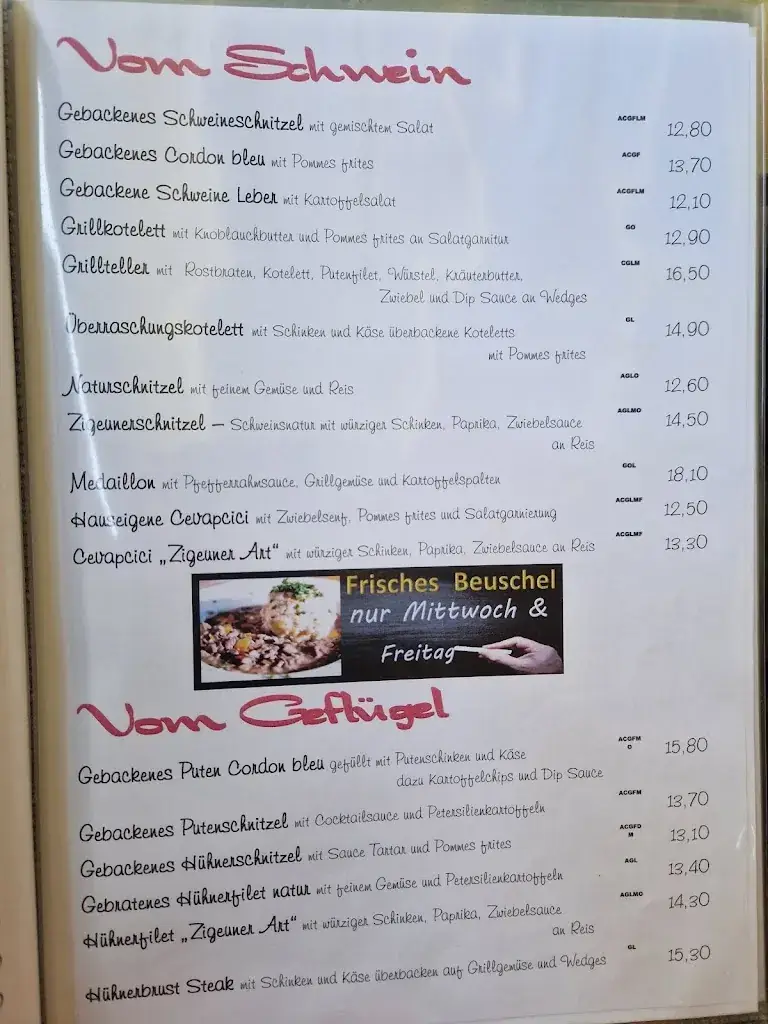 Vom Schwein
Gebackenes Schweineschnitzel mit gemischtem Salat ACGFLM 12,80
Gebackenes Cordon bleu mit Pommes frites ACGF 13,70
Gebackene Schweine Leber mit Kartoffelsalat ACGFLM 12,10
Grillkotelett mit Knoblauchbutter und Pommes frites an Salatgarnitur GO 12,90
Grillteller mit Rostbraten, Kotelett, Putenfilet, Würstel, Kräuterbutter, CGLM 16,50
Zwiebel und Dip Sauce an Wedges
Überraschungskotelett mit Schinken und Käse überbackene Koteletts GL 14,90
mit Pommes frites
Naturschnitzel mit feinem Gemüse und Reis AGLO 12,60
Zigeunerschnitzel – Schweinsnatur mit würziger Schinken, Paprika, Zwiebelsauce AGLMO 14,50
an Reis
Medaillon mit Pfefferrahmsauce, Grillgemüse und Kartoffelspalten GOL 18,10
Hauseigene Cevapcici mit Zwiebelsenf, Pommes frites und Salatgarnierung ACGLMF 12,50
Cevapcici „Zigeuner Art“ mit würziger Schinken, Paprika, Zwiebelsauce an Reis ACGLMF 13,30
Frisches Beuschel
nur Mittwoch &
Freitag
Vom Geflügel
Gebackenes Puten Cordon bleu gefüllt mit Putenschinken und Käse ACGFM 15,80
O
dazu Kartoffelchips und Dip Sauce
Gebackenes Putenschnitzel mit Cocktailsauce und Petersilienkartoffeln ACGFM 13,70
Gebackenes Hühnerschnitzel mit Sauce Tartar und Pommes frites ACGFO 13,10
M
Gebratenes Hühnerfilet natur mit feinem Gemüse und Petersilienkartoffeln AGL 13,40
Hühnerfilet „Zigeuner Art“ mit würziger Schinken, Paprika, Zwiebelsauce AGLMO 14,30
an Reis
Hühnerbrust Steak mit Schinken und Käse überbacken auf Grillgemüse und Wedges GL 15,30